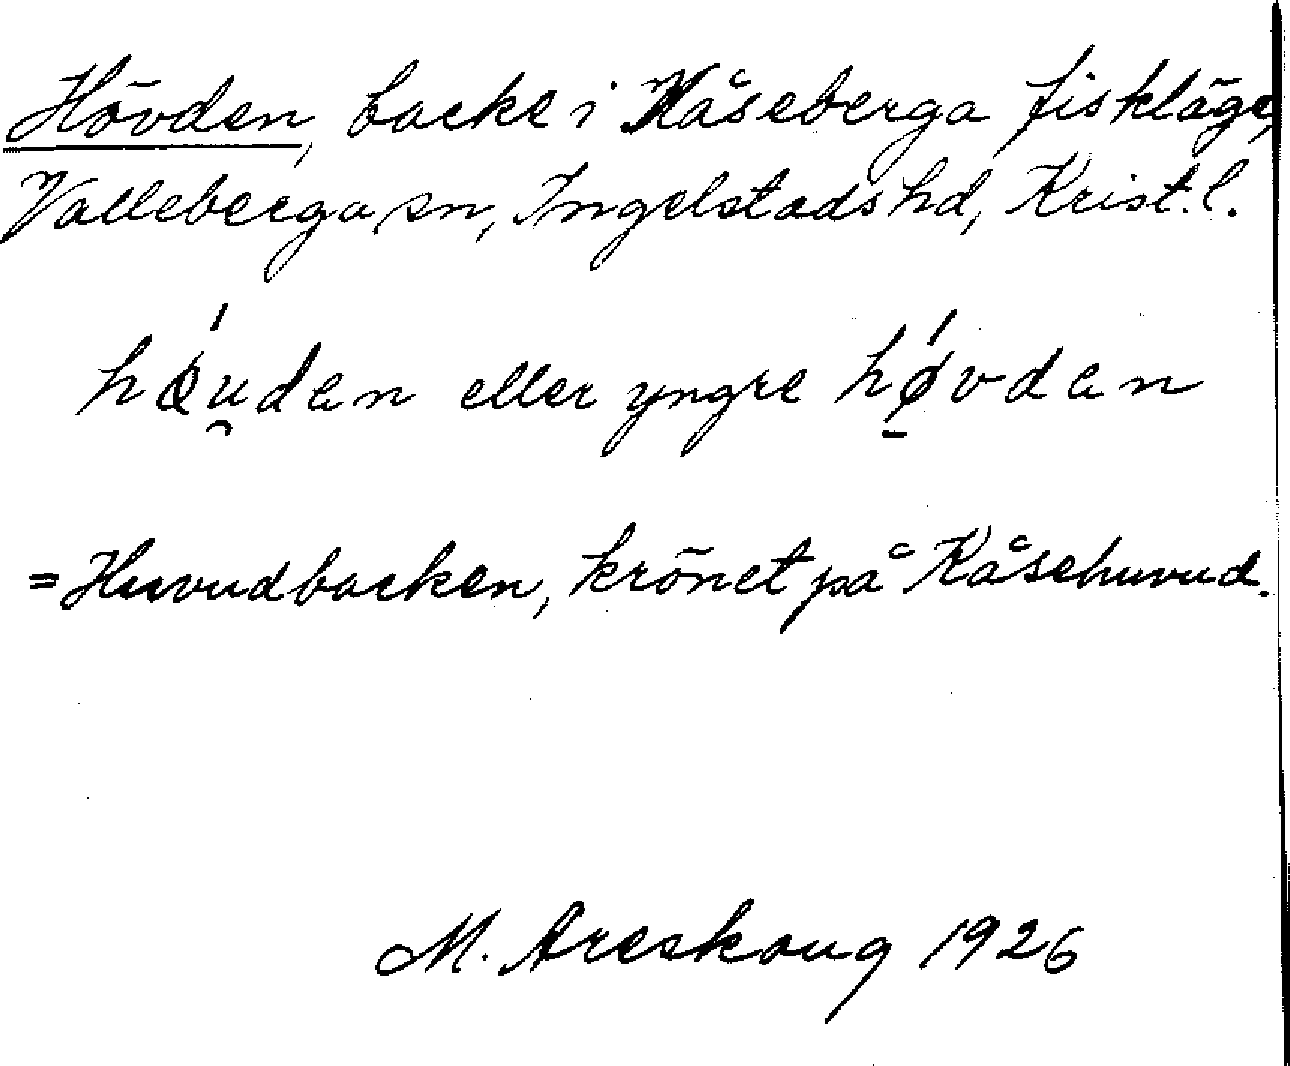 Hövden, backe i Kåseberga fiskläge,
Valleberga sn, Ingelstads hd, Krist. l.
hǿu̯den eller yngre hǿ̠vden
= Huvudbacken, krönet på Kåsehuvud.
M. Areskoug 1926